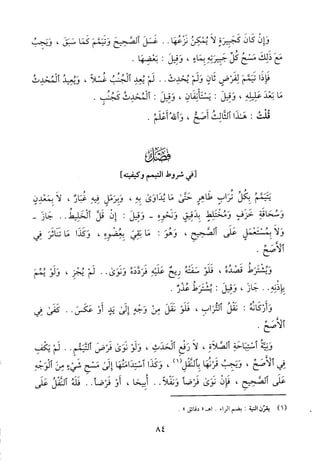 وَإِنْ كَانَ كَجَبِيرَةٍ لاَ يُمْكِنُ نَزْعُهَا.. غَسَلَ الصَّحِيحَ وَتَيَمَّمَ كَمَا سَبَقَ ، وَيَجِبُ
مَعَ ذَلِكَ مَسْحُ كُلِّ جَبِيرَتِهِ بِمَاءٍ ، وَقِيلَ : بَعْضِهَا .
فَإِذَا تَيَمَّمَ لِفَرْضٍ ثَانٍ وَلَمْ يُحْدِثْ.. لَمْ يُعِدِ الْجُنُبُ غُسْلاً ، وَيُعِيدُ الْمُحْدِثُ
مَا بَعْدَ عَلِيلِهِ ، وَقِيلَ : يَسْتَأْنِفَانِ ، وَقِيلَ : الْمُحْدِثُ كَجُنُبٍ .
قُلْتُ : هَذَا الثَّالِثُ أَصَحُّ ، وَاللهُ أَعْلَمُ .
فَصْلٌ
[في شروط التيمم وكيفيته]
يَتَيَمَّمُ بِكُلِّ تُرَابٍ طَاهِرٍ حَتَّى مَا يُدَاوَى بِهِ ، وَبِرَمْلٍ فِيهِ غُبَارٌ ، لاَ بِمَعْدِنٍ
وَسُحَاقَةِ خَزَفٍ وَمُخْتَلِطٍ بِدَقِيقٍ وَنَحْوِهِ - وَقِيلَ : إِنْ قَلَّ الْخَلِيطُ.. جَازَ -
وَلاَ بِمُسْتَعْمَلٍ عَلَى الصَّحِيحِ ، وَهُوَ : مَا بَقِيَ بِعُضْوِهِ ، وَكَذَا مَا تَنَاثَرَ فِي
الأَصَحِّ .
وَيُشْتَرَطُ قَصْدُهُ ، فَلَوْ سَفَتْهُ رِيحٌ عَلَيْهِ فَرَدَّدَهُ وَنَوَى.. لَمْ يُجْزِ ، وَلَوْ يُمِّمَ
بِإِذْنِهِ.. جَازَ ، وَقِيلَ : يُشْتَرَطُ عُذْرٌ .
وَأَرْكَانُهُ : نَقْلُ التُّرَابِ ، فَلَوْ نَقَلَ مِنْ وَجْهٍ إِلَى يَدٍ أَوْ عَكَسَ.. كَفَى فِي
الأَصَحِّ .
وَنِيَّةُ اسْتِبَاحَةِ الصَّلاَةِ ، لاَ رَفْعِ الْحَدَثِ ، وَلَوْ نَوَى فَرْضَ التَّيَمُّمِ.. لَمْ يَكْفِ
فِي الأَصَحِّ ، وَيَجِبُ قَرْنُهَا بِالنَّقْلِ(١) ، وَكَذَا اسْتِدَامَتُهَا إِلَى مَسْحِ شَيْءٍ مِنَ الْوَجْهِ
عَلَى الصَّحِيحِ ، فَإِنْ نَوَى فَرْضاً وَنَفْلاً.. أُبِيحَا ، أَوْ فَرْضاً.. فَلَهُ النَّفْلُ عَلَى
(١) يقرُن النية : بضم الراء . اهـ« دقائق » .
٨٤